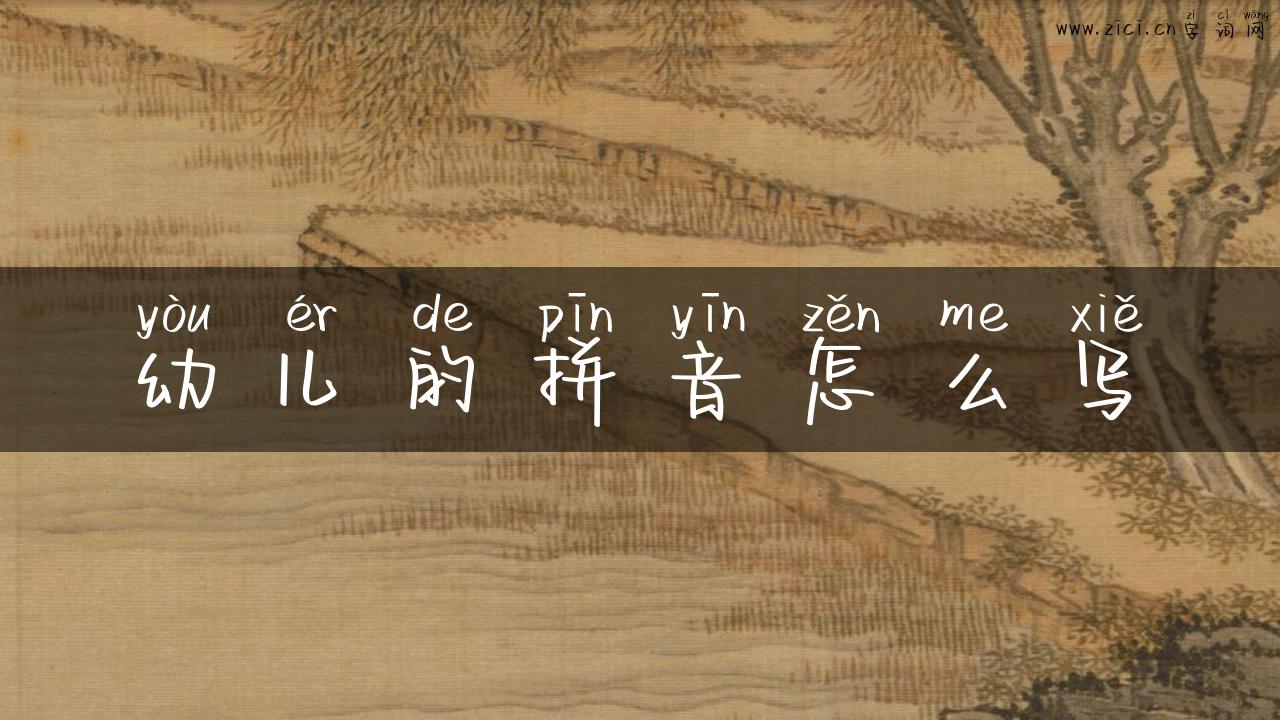 zì cí wǎng
www.zici.cn字词网
yòu ér de pīn yīn zěn me xiě
幼儿的拼音怎么写